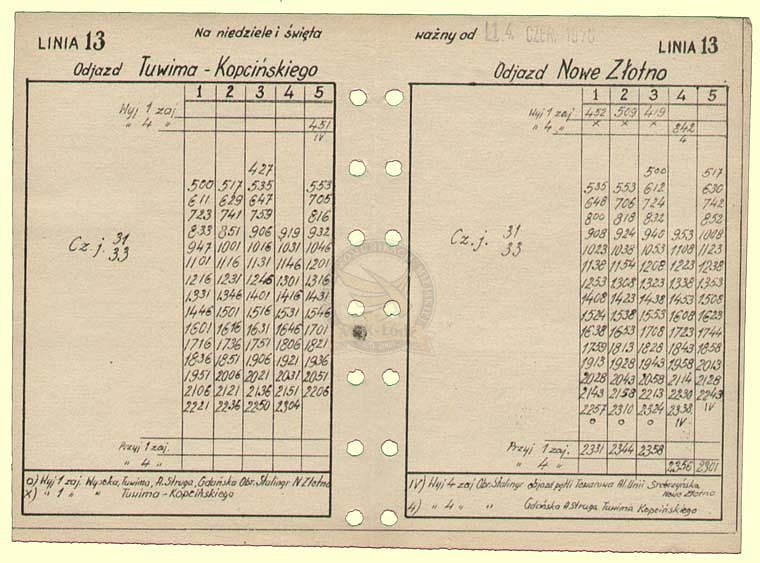 LINIA 13
Na niedziele i święta
Odjazd Tuwima - Kopcińskiego
1 2 3 4 5
Wyj 1 zaj.
" 4 " 451
IV
427
500 517 535 553
611 629 647 705
723 741 759 816
833 851 906 919 932
947 1001 1016 1031 1046
1101 1116 1131 1146 1201
1216 1231 1246 1301 1316
1331 1346 1401 1416 1431
1446 1501 1516 1531 1546
1601 1616 1631 1646 1701
1716 1736 1751 1806 1821
1836 1851 1906 1921 1936
1951 2006 2021 2031 2051
2106 2121 2136 2151 2206
2221 2236 2250 2304
Cz. j. 31
33
Przyj 1 zaj.
" 4 "
o) Wyj 1 zaj. Wysoka, Tuwima, A. Struga, Gdańska Obr. Stalingr N. Złotno
x) " 1 " " Tuwima - Kopcińskiego
ważny od 14. CZER. 1970
LINIA 13
Odjazd Nowe Złotno
1 2 3 4 5
Wyj 1 zaj 452 509 419
" 4 " x x x 842
4
500 517
535 553 612 630
648 706 724 742
800 818 832 852
908 924 940 953 1008
1023 1038 1053 1108 1123
1138 1154 1208 1223 1238
1253 1308 1323 1338 1353
1408 1423 1438 1453 1508
1524 1538 1553 1608 1623
1638 1653 1708 1723 1744
1759 1813 1828 1843 1858
1913 1928 1943 1958 2013
2028 2043 2058 2114 2128
2143 2158 2213 2230 2243
2257 2310 2324 2338 IV
o o o IV
Cz. j. 31
33
Przyj 1 zaj. 2331 2344 2358
" 4 " 2356 2301
IV) Wyj 4 zaj Obr. Stalingr odjazd pętli Towarowa Al. Unii Srebrzyńska
Nowe Złotno
4) " 4 " " Gdańska A. Struga Tuwima Kopcińskiego